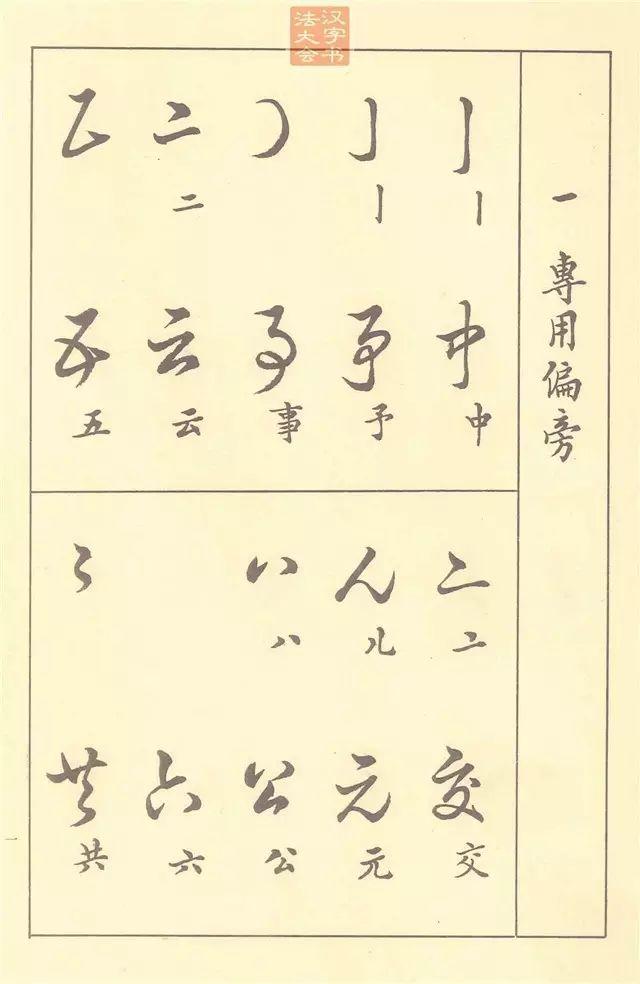 汉字书法大会
一 專用偏旁
丨
中 中
亅
予 予
事 事
二 二
云 云
五 五
亠 亠
交 交
儿 儿
元 元
八 八
公 公
六 六
共 共